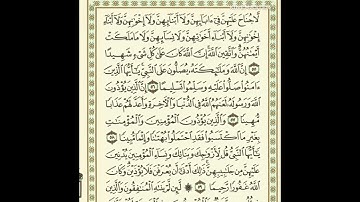 لَّا جُنَاحَ عَلَيْهِنَّ فِىٓ ءَابَآئِهِنَّ وَلَآ أَبْنَآئِهِنَّ وَلَآ إِخْوَٰنِهِنَّ وَلَآ أَبْنَآءِ
إِخْوَٰنِهِنَّ وَلَآ أَبْنَآءِ أَخَوَٰتِهِنَّ وَلَا نِسَآئِهِنَّ وَلَا مَا مَلَكَتْ
أَيْمَٰنُهُنَّ وَٱتَّقِينَ ٱللَّهَ إِنَّ ٱللَّهَ كَانَ عَلَىٰ كُلِّ شَىْءٍ شَهِيدًا
٥٥ إِنَّ ٱللَّهَ وَمَلَٰٓئِكَتَهُۥ يُصَلُّونَ عَلَى ٱلنَّبِىِّ يَٰٓأَيُّهَا ٱلَّذِينَ
ءَامَنُوا۟ صَلُّوا۟ عَلَيْهِ وَسَلِّمُوا۟ تَسْلِيمًا ٥٦ إِنَّ ٱلَّذِينَ يُؤْذُونَ
ٱللَّهَ وَرَسُولَهُۥ لَعَنَهُمُ ٱللَّهُ فِى ٱلدُّنْيَا وَٱلْءَاخِرَةِ وَأَعَدَّ لَهُمْ عَذَابًا
مُّهِينًا ٥٧ وَٱلَّذِينَ يُؤْذُونَ ٱلْمُؤْمِنِينَ وَٱلْمُؤْمِنَٰتِ
بِغَيْرِ مَا ٱكْتَسَبُوا۟ فَقَدِ ٱحْتَمَلُوا۟ بُهْتَٰنًا وَإِثْمًا مُّبِينًا ٥٨
يَٰٓأَيُّهَا ٱلنَّبِىُّ قُل لِّأَزْوَٰجِكَ وَبَنَاتِكَ وَنِسَآءِ ٱلْمُؤْمِنِينَ يُدْنِينَ
عَلَيْهِنَّ مِن جَلَٰبِيبِهِنَّ ذَٰلِكَ أَدْنَىٰٓ أَن يُعْرَفْنَ فَلَا يُؤْذَيْنَ وَكَانَ
ٱللَّهُ غَفُورًا رَّحِيمًا ٥٩ ۞ لَّئِن لَّمْ يَنتَهِ ٱلْمُنَٰفِقُونَ وَٱلَّذِينَ